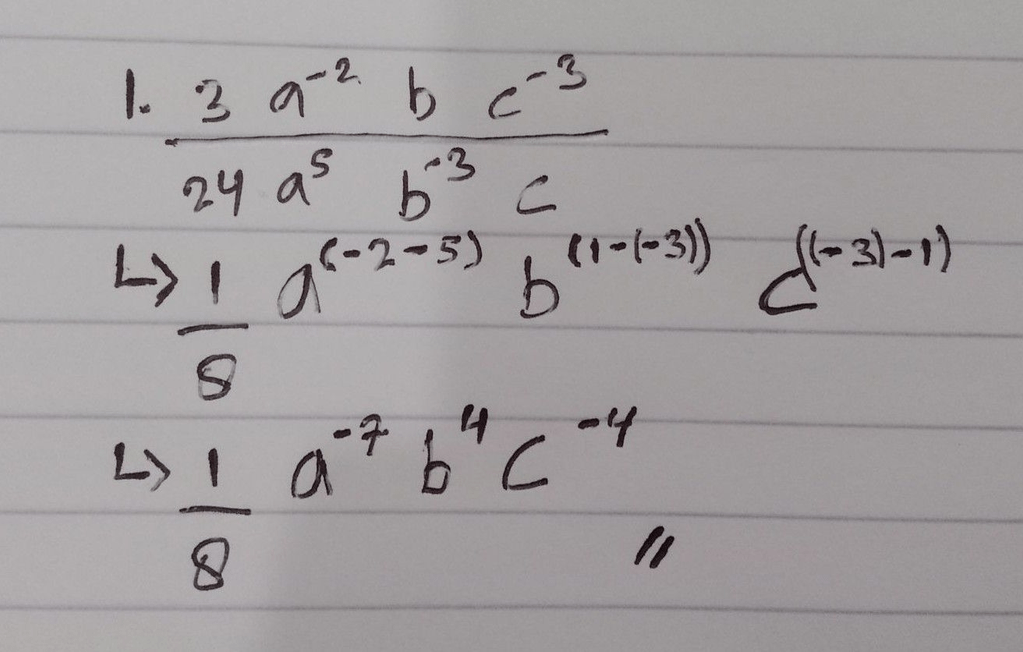 1. 3 a⁻² b c⁻³
24 a⁵ b⁻³ c
↳ 1 a⁽⁻²⁻⁵⁾ b⁽¹⁻⁽⁻³⁾⁾ c⁽⁽⁻³⁾⁻¹⁾
8
↳ 1 a⁻⁷ b⁴ c⁻⁴
8 //